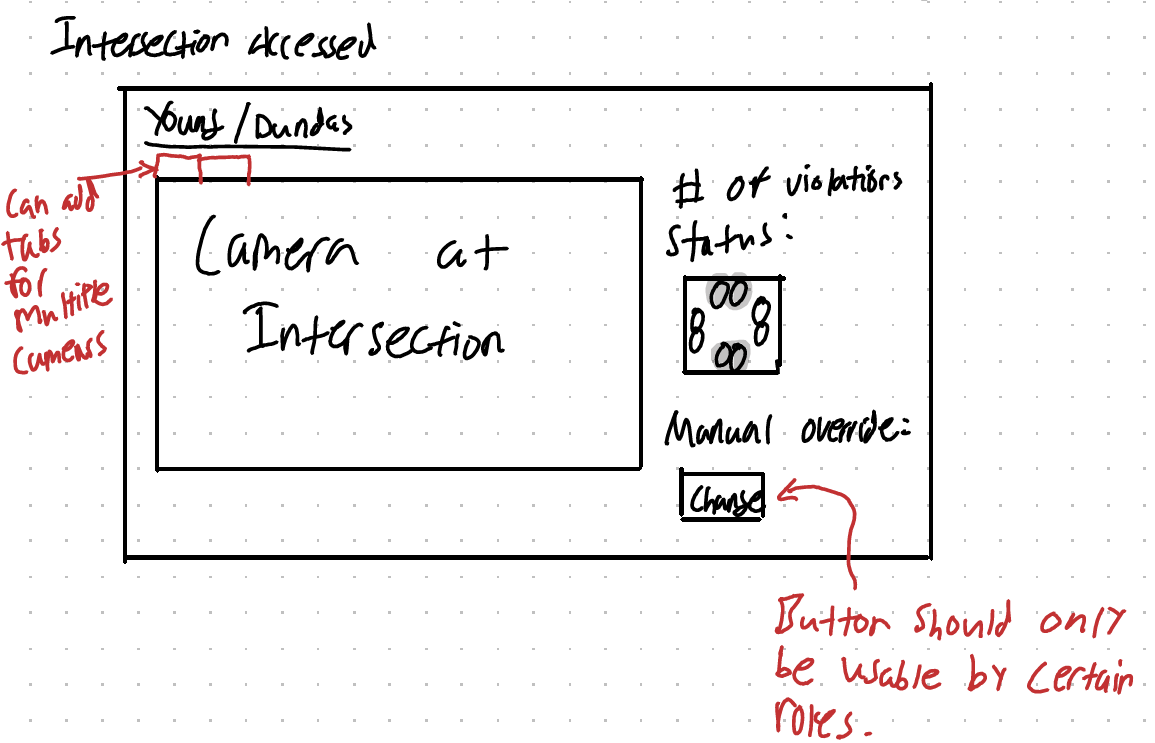 Intersection accessed
Young/Dundas
Can add
tabs
for
multiple
cameras
Camera at
Intersection
# of violations
Status:
Manual override:
Change
Button should only
be usable by certain
roles.